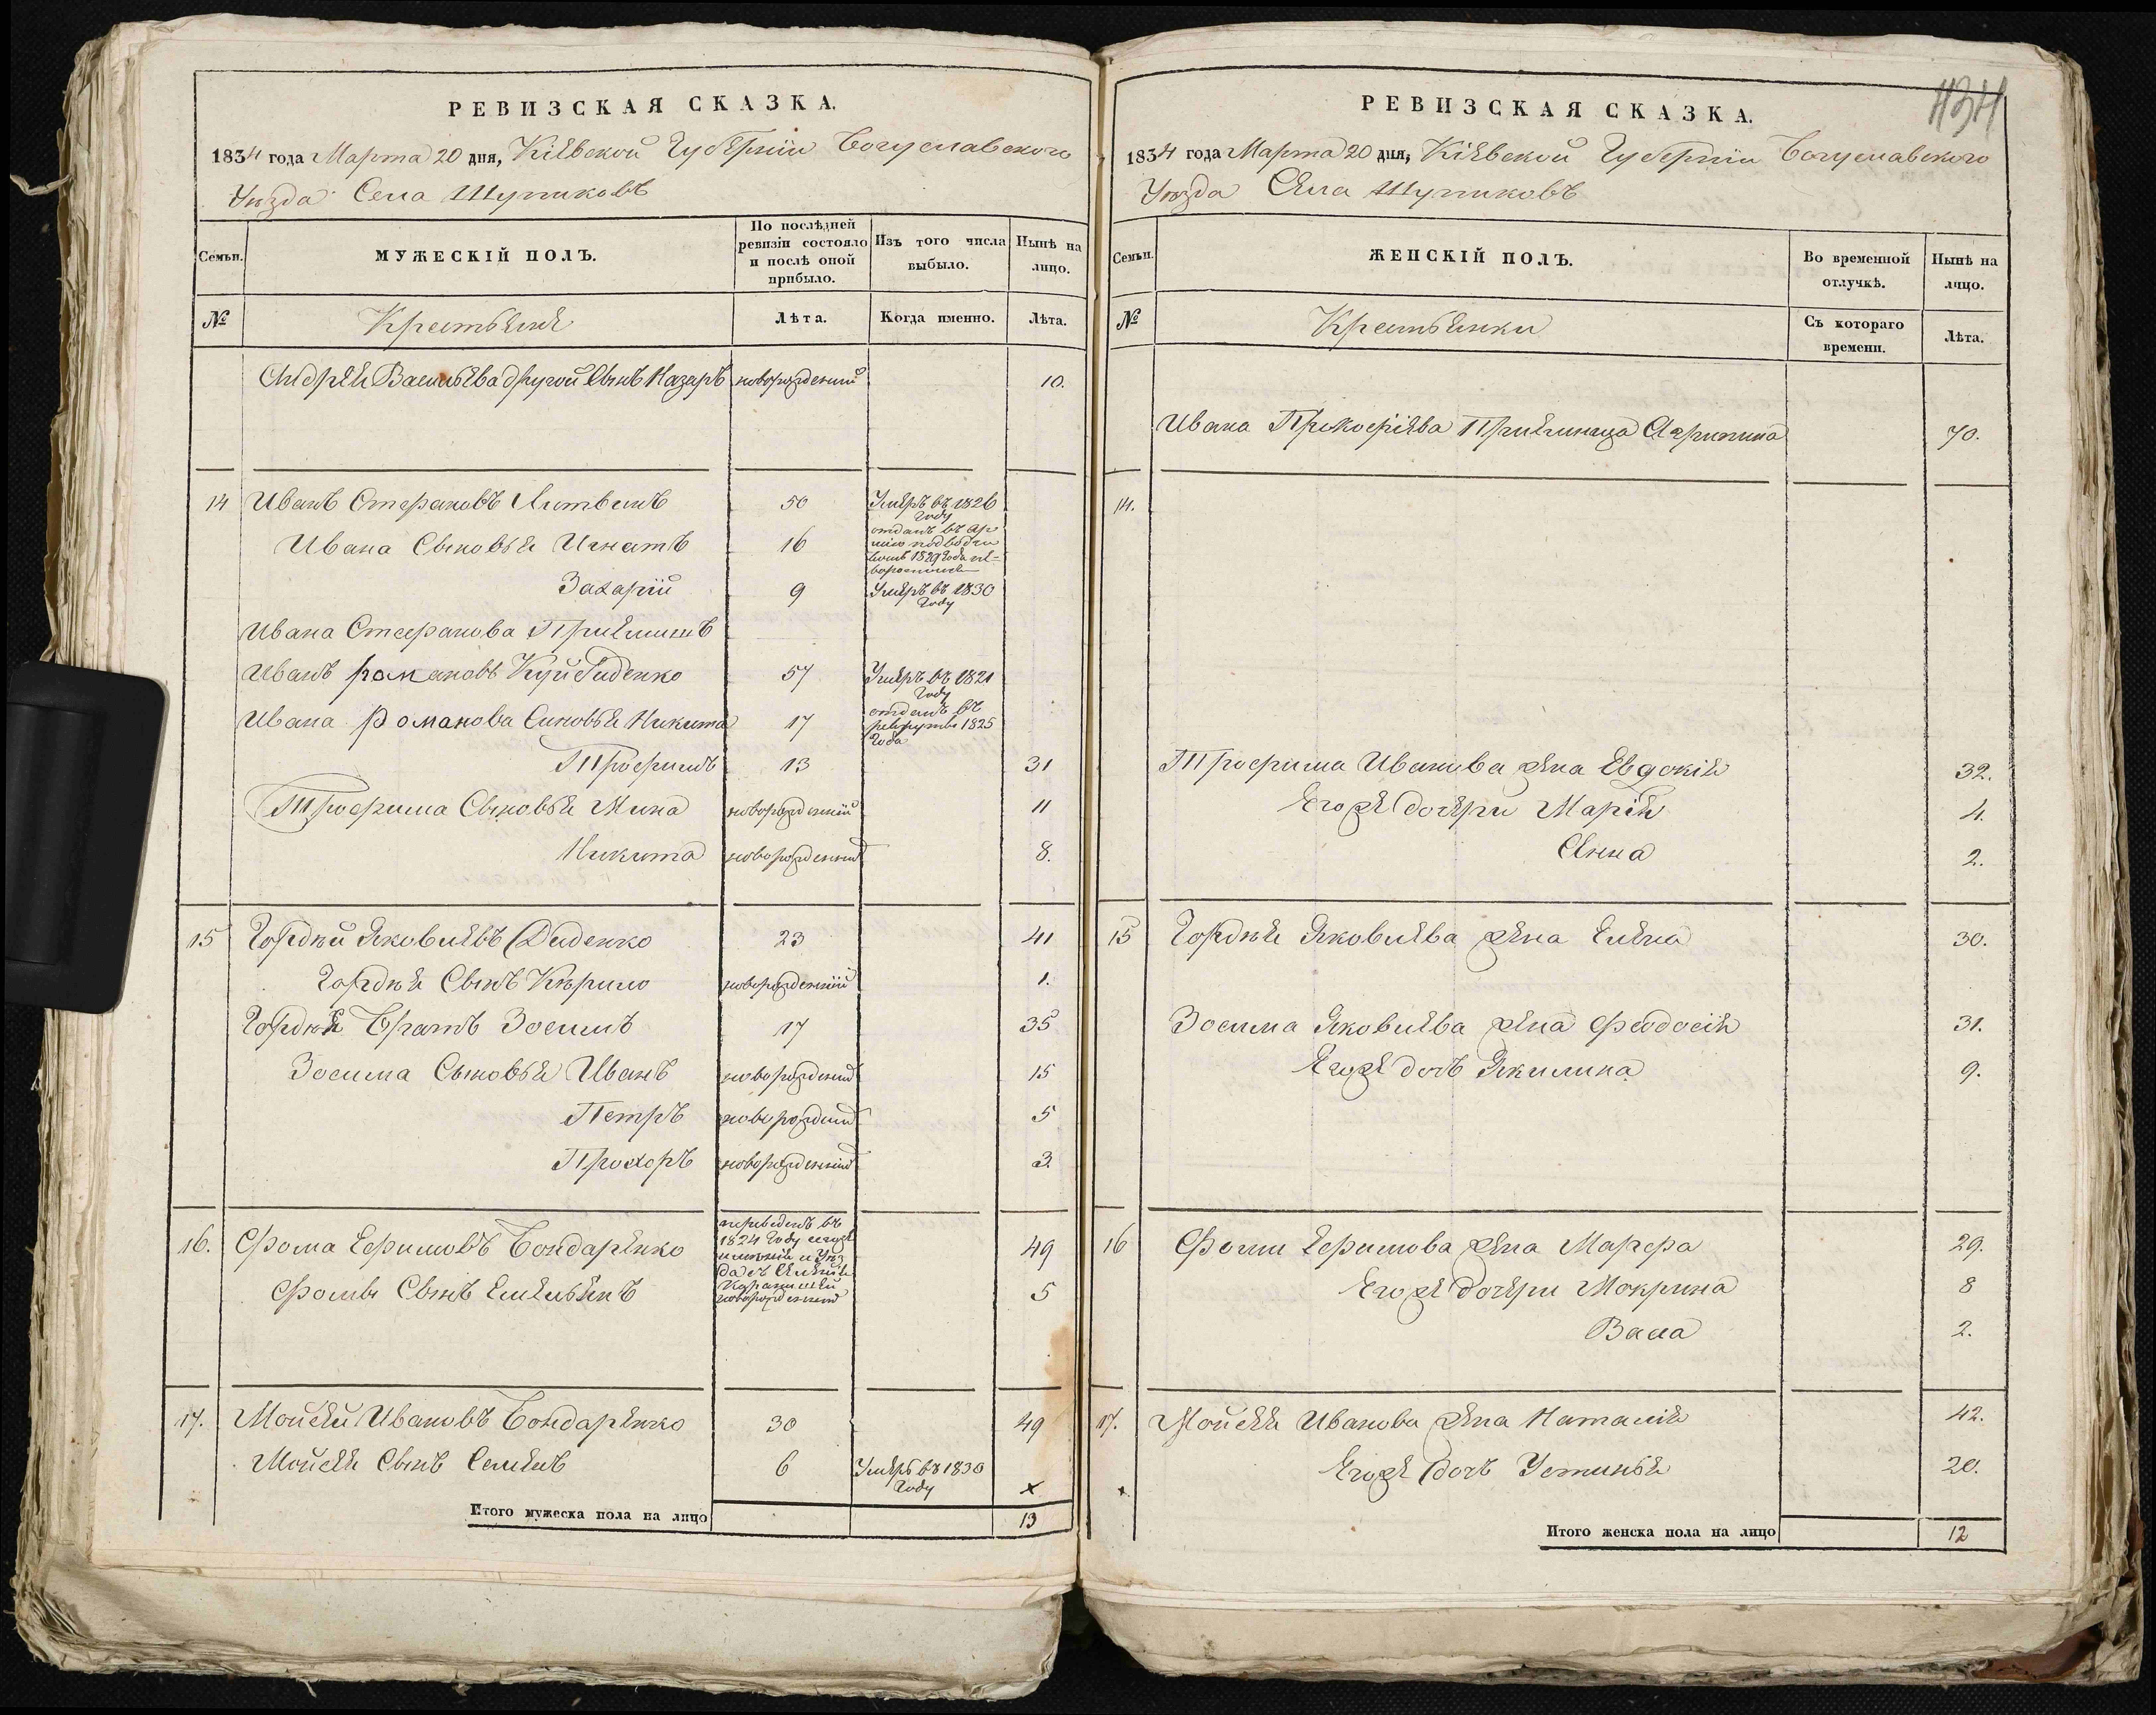 РЕВИЗСКАЯ СКАЗКА.
1834 года Марта 20 дня, Кіевской Губерніи Богуславского
Уѣзда Села Шупиковъ
Семьи.
МУЖЕСКІЙ ПОЛЪ.
По послѣдней ревизіи состояло и послѣ оной прибыло.
Изъ того числа выбыло.
Нынѣ на лицо.
№
Крестьяне
Лѣта.
Когда именно.
Лѣта.
Андрея Васильева другой сынъ Назаръ новорожденный 10.
14 Иванъ Стефановъ Литвинъ 50 Умеръ въ 1826 году
Ивана Сыновья Игнатъ 16 отданъ въ 1829 года
Захарій 9 Умеръ въ 1830 году
Ивана Стефанова Приемышъ
Иванъ Романовъ 57 Умеръ въ 1821 году
Ивана Романова Сыновья Никита 17 отданъ въ рекруты 1825 года
Трофимъ 13 31
Трофима Сыновья Мина новорожденный 11
Никита новорожденный 8.
15 Гордѣй Яковлевъ Диденко 23 41
Гордѣя Сынъ Кирило новорожденный 1.
Гордѣя Братъ Зосимъ 17 35
Зосима Сыновья Иванъ новорожденный 15
Петръ новорожденный 5
Прохоръ новорожденный 3.
16. Фома Ефимовъ Бондаренко переведенъ въ 1824 году 49
Фомы Сынъ Емельянъ новорожденный 5
17. Мойсей Ивановъ Бондаренко 30 49
Мойсея Сынъ Семенъ 6 Умеръ въ 1830 году x
Итого мужеска пола на лицо 13
РЕВИЗСКАЯ СКАЗКА.
434
1834 года Марта 20 дня, Кіевской Губерніи Богуславского
Уѣзда Села Шупиковъ
Семьи.
ЖЕНСКІЙ ПОЛЪ.
Во временной отлучкѣ.
Нынѣ на лицо.
№
Крестьянки
Съ котораго времени.
Лѣта.
Ивана Прокофіева Агрипина 70.
14.
Трофима Иванова жена Евдокія 32.
Его же дочери Марія 4.
Анна 2.
15 Гордѣя Яковлева жена Елена 30.
Зосима Яковлева жена Феодосія 31.
Его же дочь Якилина 9.
16 Фомы Ефимова жена Марфа 29.
Его же дочери Мокрина 8
Васа 2.
17. Мойсея Иванова жена Наталія 42.
x Его же дочь Устинья 20.
Итого женска пола на лицо 12